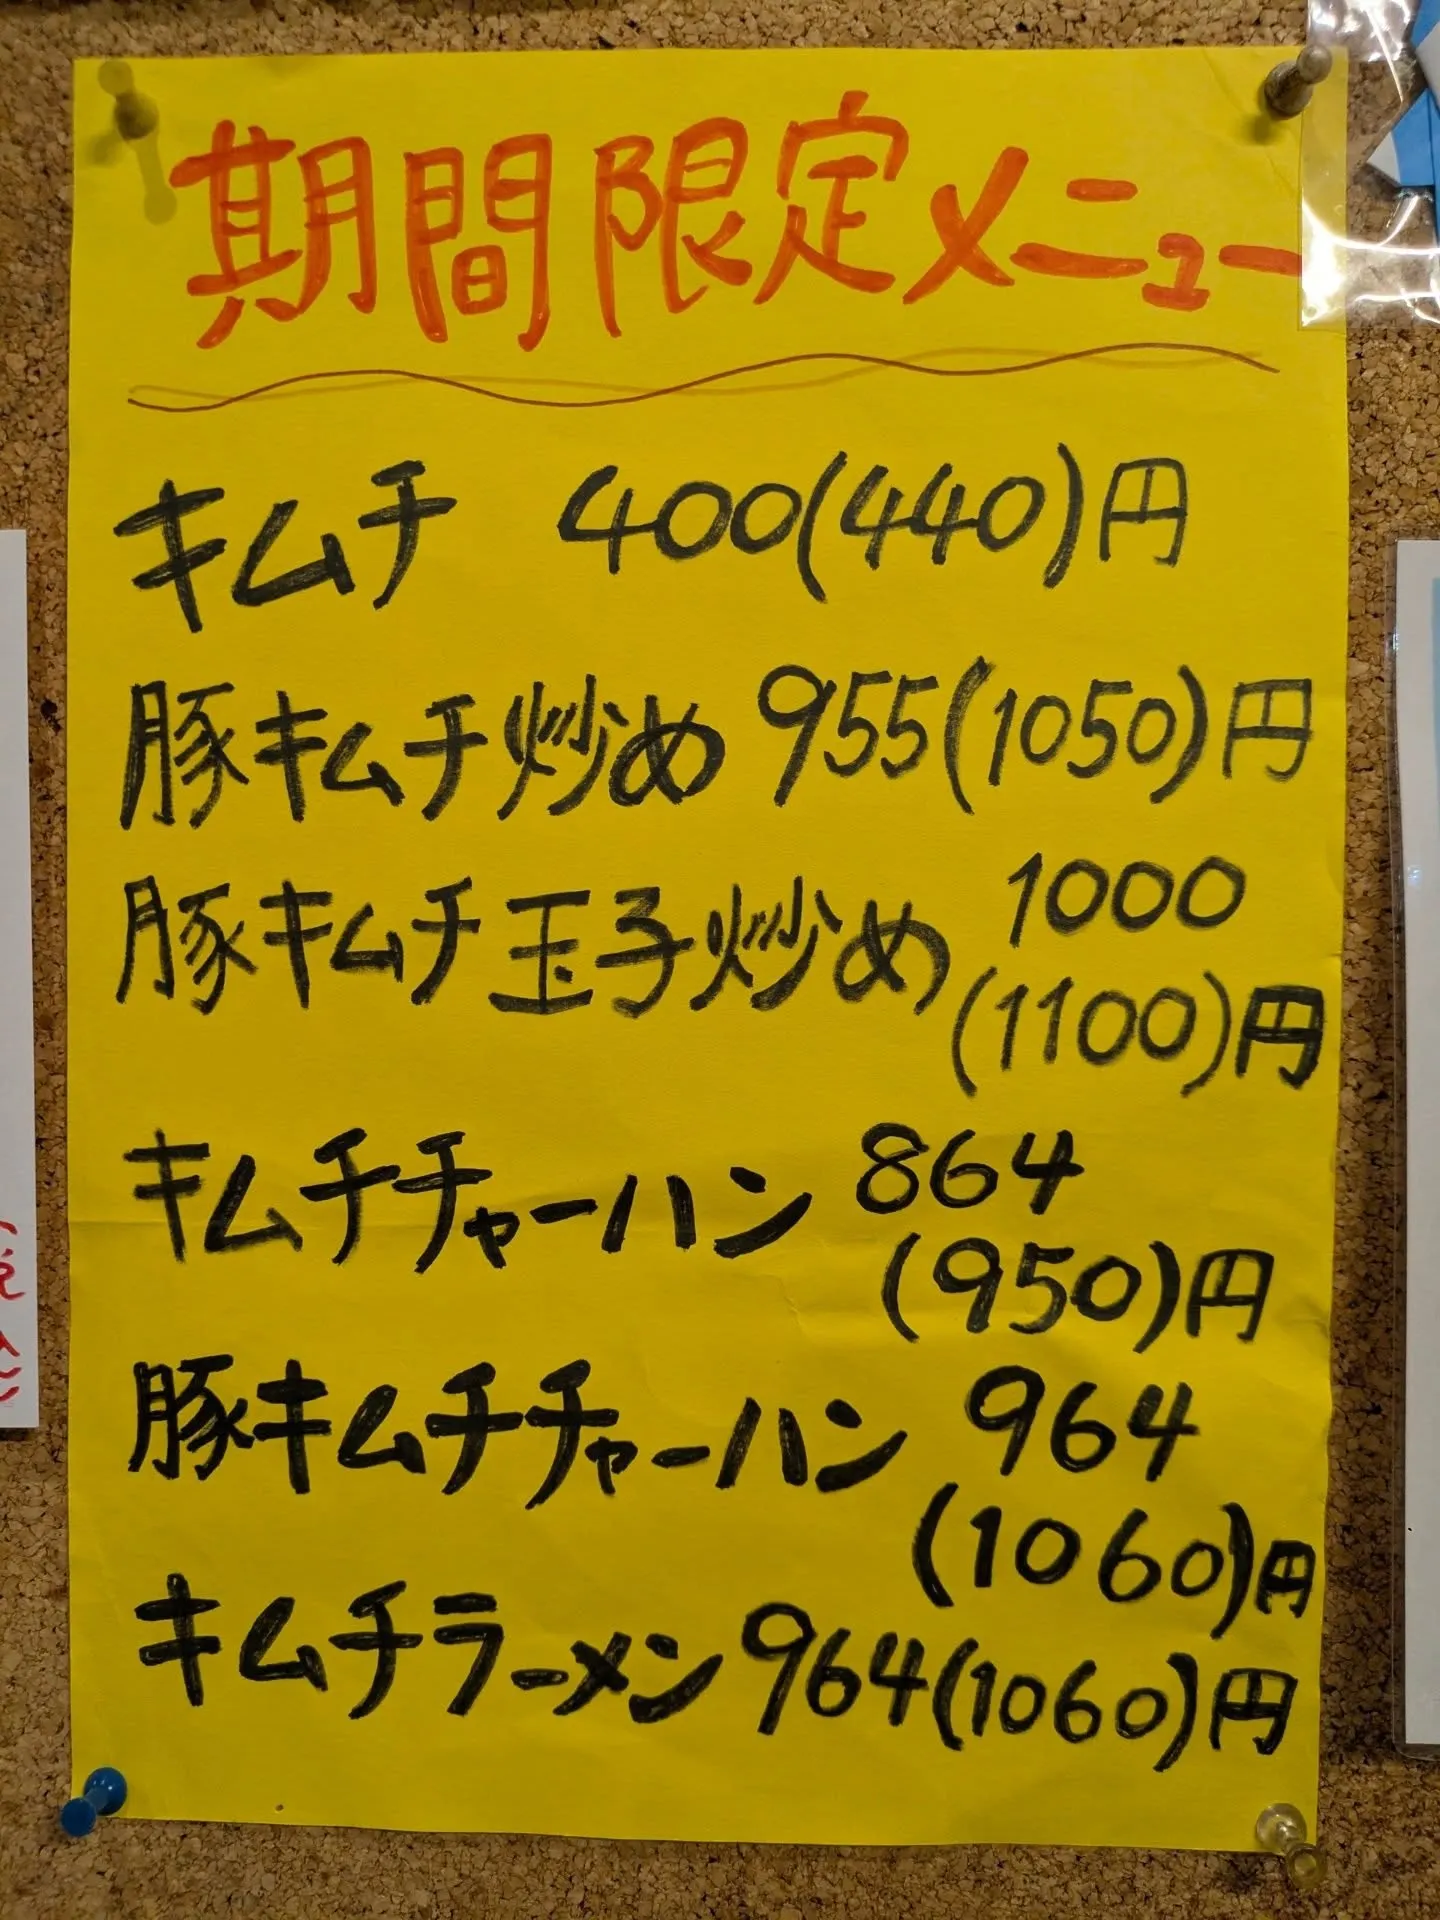 期間限定メニュー
キムチ 400(440)円
豚キムチ炒め 955(1050)円
豚キムチ玉子炒め 1000
(1100)円
キムチチャーハン 864
(950)円
豚キムチチャーハン 964
(1060)円
キムチラーメン 964(1060)円